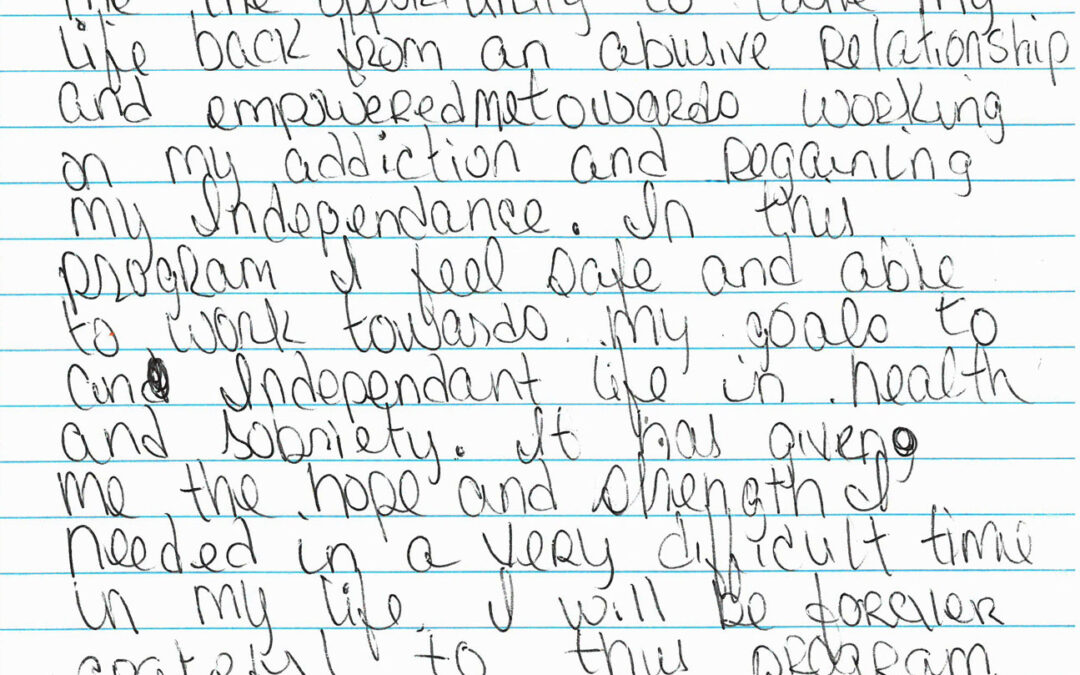 me the opportunity to take my
life back from an abusive Relationship
and empoweredmetowards working
on my addiction and Regaining
my Independance. In this
program I feel safe and able
to work towards my goals to
an Independant life in health
and sobriety. It has given
me the hope and strength I
needed in a very difficult time
in my life. I will be forever
grateful to this program